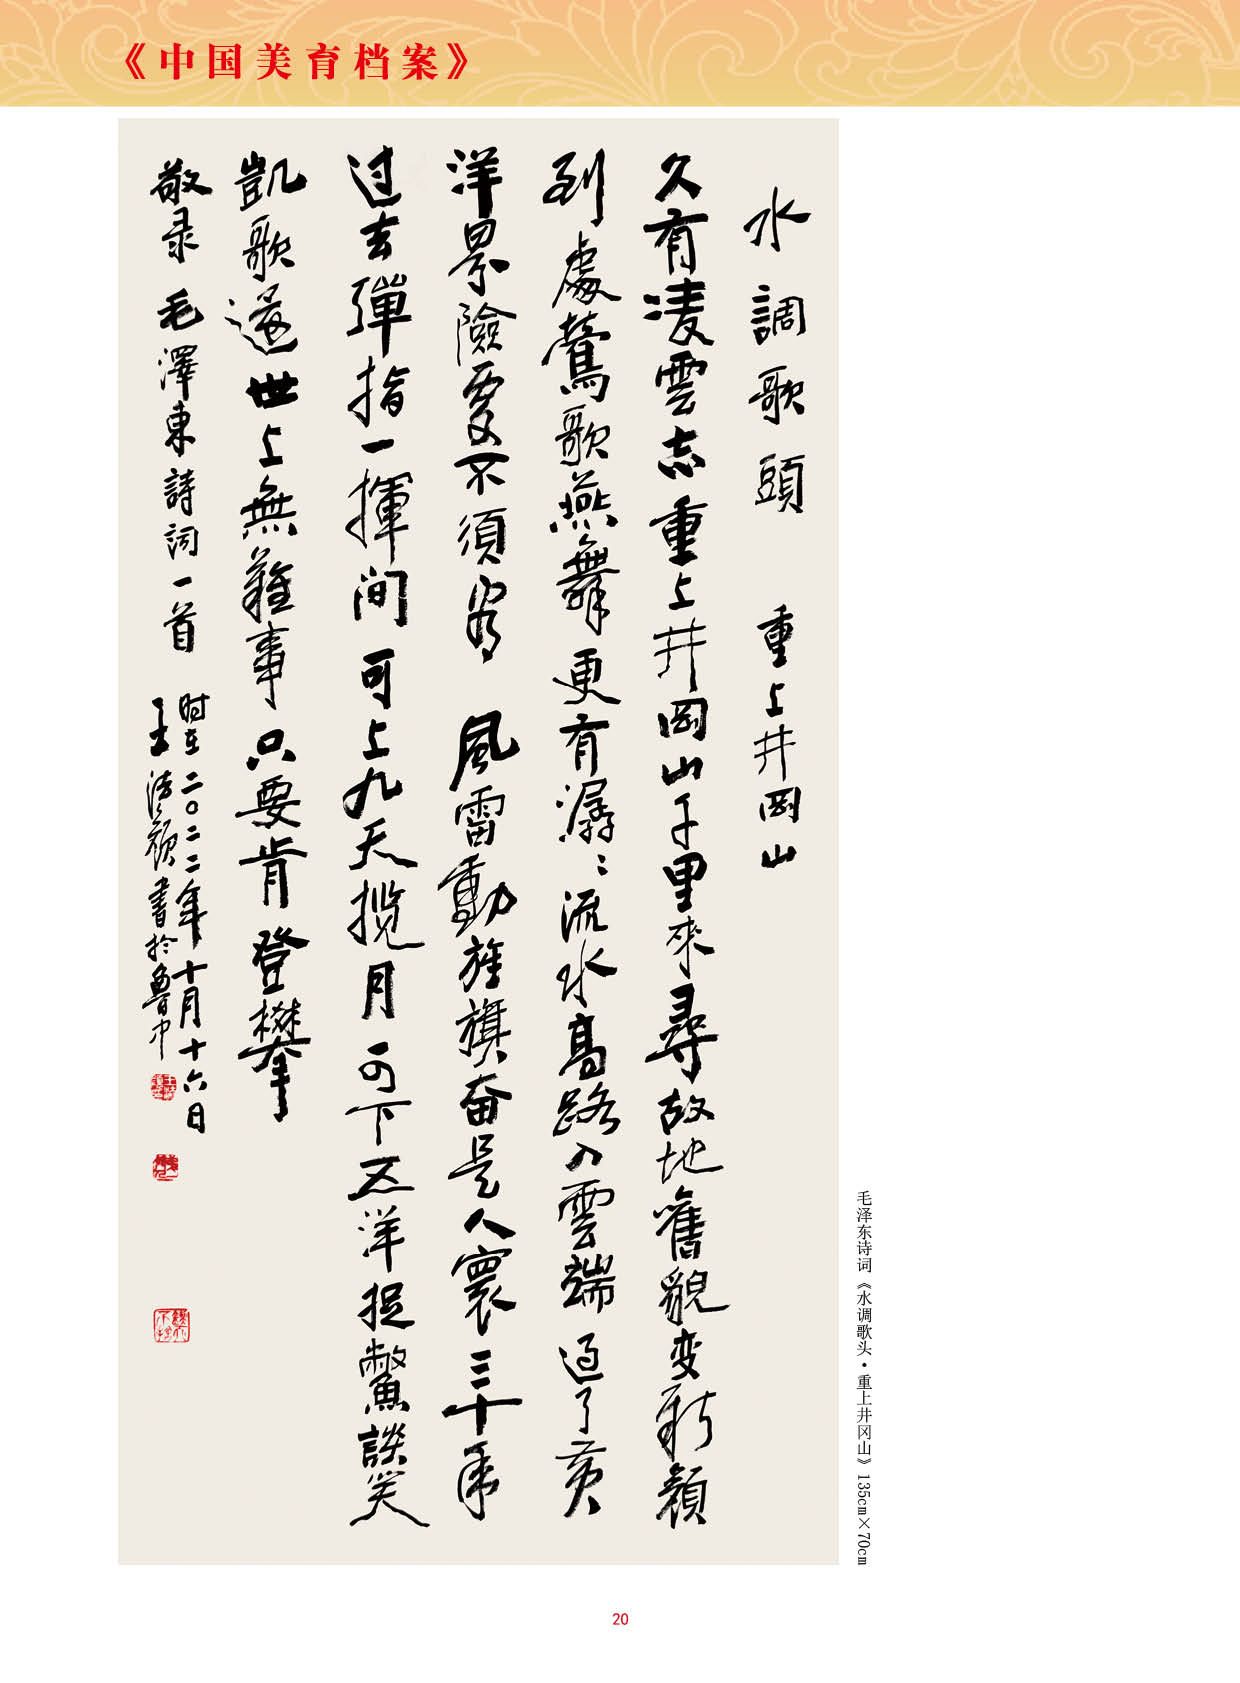 《中国美育档案》
水調歌頭 重上井岡山
久有凌雲志重上井岡山千里來尋故地舊貌变新顏
到處鶯歌燕舞更有潺〻流水高路入雲端过了黄
洋界險要不須看 風雷動旌旗奮是人寰三十年
过去彈指一揮间可上九天揽月可下五洋捉鱉談笑
凱歌還世上無難事只要肯登攀
敬录毛澤東詩詞一首
时在二〇二二年十月十六日
王法領書於魯中
毛泽东诗词《水调歌头·重上井冈山》135cm×70cm
20